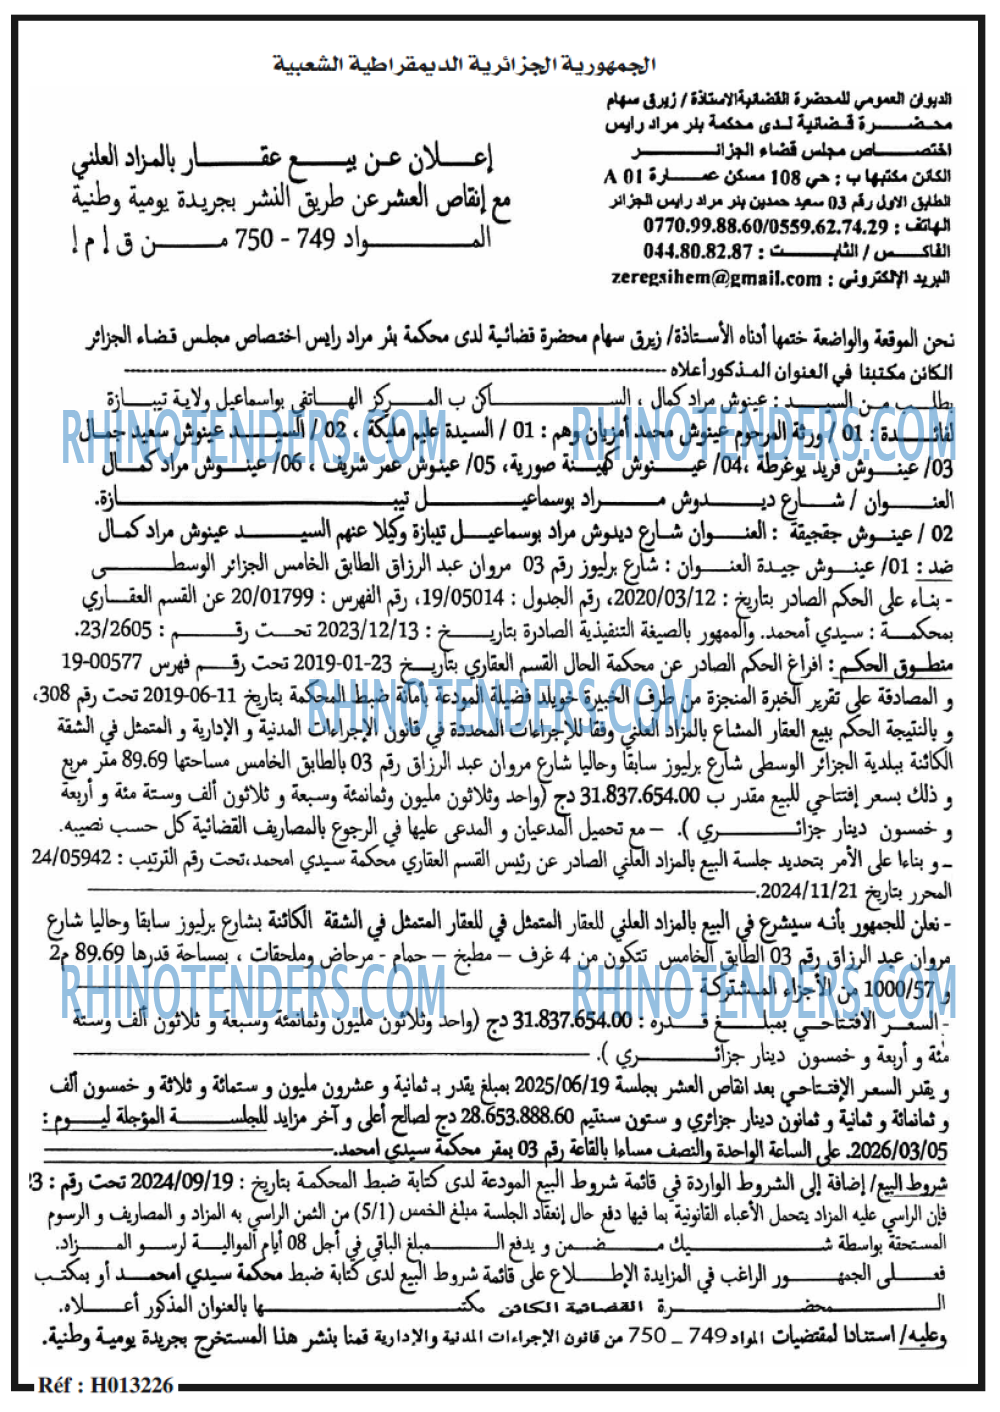 الجمهورية الجزائرية الديمقراطية الشعبية
الديوان العمومي للمحضرة القضائية الاستاذة / زيرق سهام
محضرة قضائية لدى محكمة بئر مراد رايس
اختصاص مجلس قضاء الجزائر
الكائن مكتبها ب : حي 108 مسكن عمارة A 01
الطابق الاول رقم 03 سعيد حمدين بئر مراد رايس الجزائر
الهاتف : 0770.99.88.60/0559.62.74.29
الفاكس / الثابت : 044.80.82.87
البريد الإلكتروني : zeregsihem@gmail.com
إعلان عن بيع عقار بالمزاد العلني
مع إنقاص العشر عن طريق النشر بجريدة يومية وطنية
المواد 749 - 750 من ق إ م إ
نحن الموقعة والواضعة ختمها أدناه الأستاذة/ زيرق سهام محضرة قضائية لدى محكمة بئر مراد رايس اختصاص مجلس قضاء الجزائر
الكائن مكتبنا في العنوان المذكور أعلاه
بطلب من السيد : عينوش مراد كمال ، الساكن ب المركز الهاتفي بواسماعيل ولاية تيبازة
لفائدة : 01 / ورثة المرحوم عينوش محمد أمزيان وهم : 01 / السيدة عليم مليكة ، 02 / السيد عينوش سعيد جمال
03/ عينوش فريد يوغرطة ،04/ عينوش كهينة صورية، 05/ عينوش عمر شريف ، 06/ عينوش مراد كمال
العنوان / شارع ديدوش مراد بوسماعيل تيبازة.
02 / عينوش جقجيقة : العنوان شارع ديدوش مراد بوسماعيل تيبازة وكيلا عنهم السيد عينوش مراد كمال
ضد : 01/ عينوش جيدة العنوان : شارع برليوز رقم 03 مروان عبد الرزاق الطابق الخامس الجزائر الوسطى
- بناء على الحكم الصادر بتاريخ : 2020/03/12، رقم الجدول : 19/05014، رقم الفهرس : 20/01799 عن القسم العقاري
بمحكمة : سيدي أمحمد. والممهور بالصيغة التنفيذية الصادرة بتاريخ : 2023/12/13 تحت رقم : 23/2605.
منطوق الحكم : افراغ الحكم الصادر عن محكمة الحال القسم العقاري بتاريخ 23-01-2019 تحت رقم فهرس 00577-19
و المصادقة على تقرير الخبرة المنجزة من طرف الخبيرة خويلد فضيلة المودعة بأمانة ضبط المحكمة بتاريخ 11-06-2019 تحت رقم 308،
و بالنتيجة الحكم ببيع العقار المشاع بالمزاد العلني وفقا للإجراءات المحددة في قانون الإجراءات المدنية و الإدارية و المتمثل في الشقة
الكائنة ببلدية الجزائر الوسطى شارع برليوز سابقا وحاليا شارع مروان عبد الرزاق رقم 03 بالطابق الخامس مساحتها 89.69 متر مربع
و ذلك بسعر إفتتاحي للبيع مقدر ب 31.837.654.00 دج (واحد وثلاثون مليون وثمانمئة وسبعة و ثلاثون ألف وستة مئة و أربعة
و خمسون دينار جزائري ). – مع تحميل المدعيان و المدعى عليها في الرجوع بالمصاريف القضائية كل حسب نصيبه.
– و بناءا على الأمر بتحديد جلسة البيع بالمزاد العلني الصادر عن رئيس القسم العقاري محكمة سيدي امحمد،تحت رقم الترتيب : 24/05942
المحرر بتاريخ 2024/11/21.
- نعلن للجمهور بأنه سيشرع في البيع بالمزاد العلني للعقار المتمثل في للعقار المتمثل في الشقة الكائنة بشارع برليوز سابقا وحاليا شارع
مروان عبد الرزاق رقم 03 الطابق الخامس تتكون من 4 غرف – مطبخ – حمام - مرحاض وملحقات ، بمساحة قدرها 89.69 م2
و 1000/57 من الأجزاء المشتركة
- السعر الافتتاحي بمبلغ قدره : 31.837.654.00 دج (واحد وثلاثون مليون وثمانمئة وسبعة و ثلاثون ألف وستة
مئة و أربعة و خمسون دينار جزائري ).
و يقدر السعر الإفتتاحي بعد انقاص العشر بجلسة 2025/06/19 بمبلغ يقدر بـ ثمانية و عشرون مليون و ستمائة و ثلاثة و خمسون ألف
و ثمانمائة و ثمانية و ثمانون دينار جزائري و ستون سنتيم 28.653.888.60 دج لصالح أعلى و آخر مزايد للجلسة المؤجلة ليوم :
2026/03/05. على الساعة الواحدة والنصف مساءا بالقاعة رقم 03 بمقر محكمة سيدي امحمد.
شروط البيع/ إضافة إلى الشروط الواردة في قائمة شروط البيع المودعة لدى كتابة ضبط المحكمة بتاريخ : 2024/09/19 تحت رقم : 23
فإن الراسي عليه المزاد يتحمل الأعباء القانونية بما فيها دفع حال إنعقاد الجلسة مبلغ الخمس (5/1) من الثمن الراسي به المزاد و المصاريف و الرسوم
المستحقة بواسطة شيك مضمن و يدفع المبلغ الباقي في أجل 08 أيام الموالية لرسو المزاد.
فعلى الجمهور الراغب في المزايدة الإطلاع على قائمة شروط البيع لدى كتابة ضبط محكمة سيدي امحمد أو بمكتب
المحضرة القضائية الكائن مكتبها بالعنوان المذكور أعلاه.
وعليه/ استنادا لمقتضيات المواد 749 _ 750 من قانون الإجراءات المدنية والإدارية قمنا بنشر هذا المستخرج بجريدة يومية وطنية.
Réf : H013226
RHINOTENDERS.COM
RHINOTENDERS.COM
RHINOTENDERS.COM
RHINOTENDERS.COM
RHINOTENDERS.COM